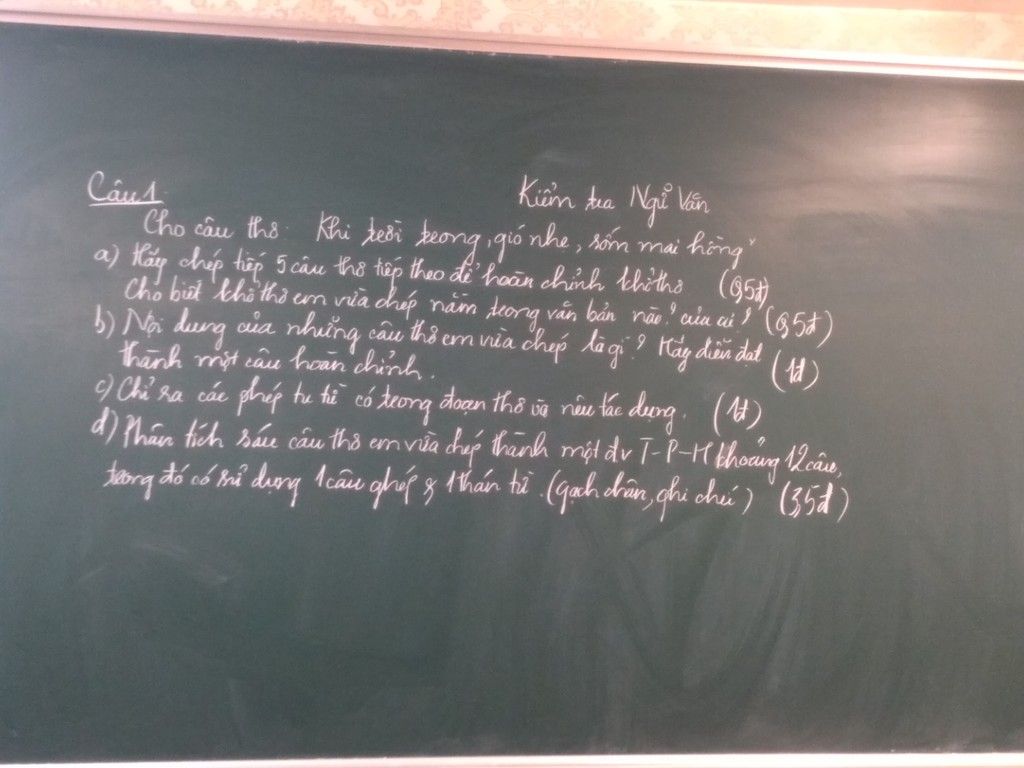 Kiểm tra Ngữ Văn
Câu 1.
Cho câu thơ. Khi trời trong, gió nhẹ, sớm mai hồng"
a) Hãy chép tiếp 5 câu thơ tiếp theo để hoàn chỉnh khổ thơ (0,5đ)
Cho biết khổ thơ em vừa chép nằm trong văn bản nào? của ai? (0,5đ)
b) Nội dung của những câu thơ em vừa chép là gì? Hãy diễn đạt
thành một câu hoàn chỉnh. (1đ)
c) Chỉ ra các phép tu từ có trong đoạn thơ và nêu tác dụng. (1đ)
d) Phân tích sáu câu thơ em vừa chép thành một đv T-P-H khoảng 12 câu,
trong đó có sử dụng 1 câu ghép & 1 thán từ. (gạch chân, ghi chú) (3,5đ)